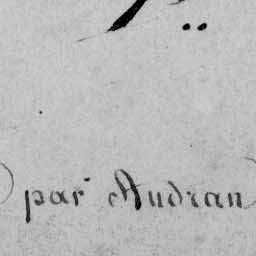 par Audran